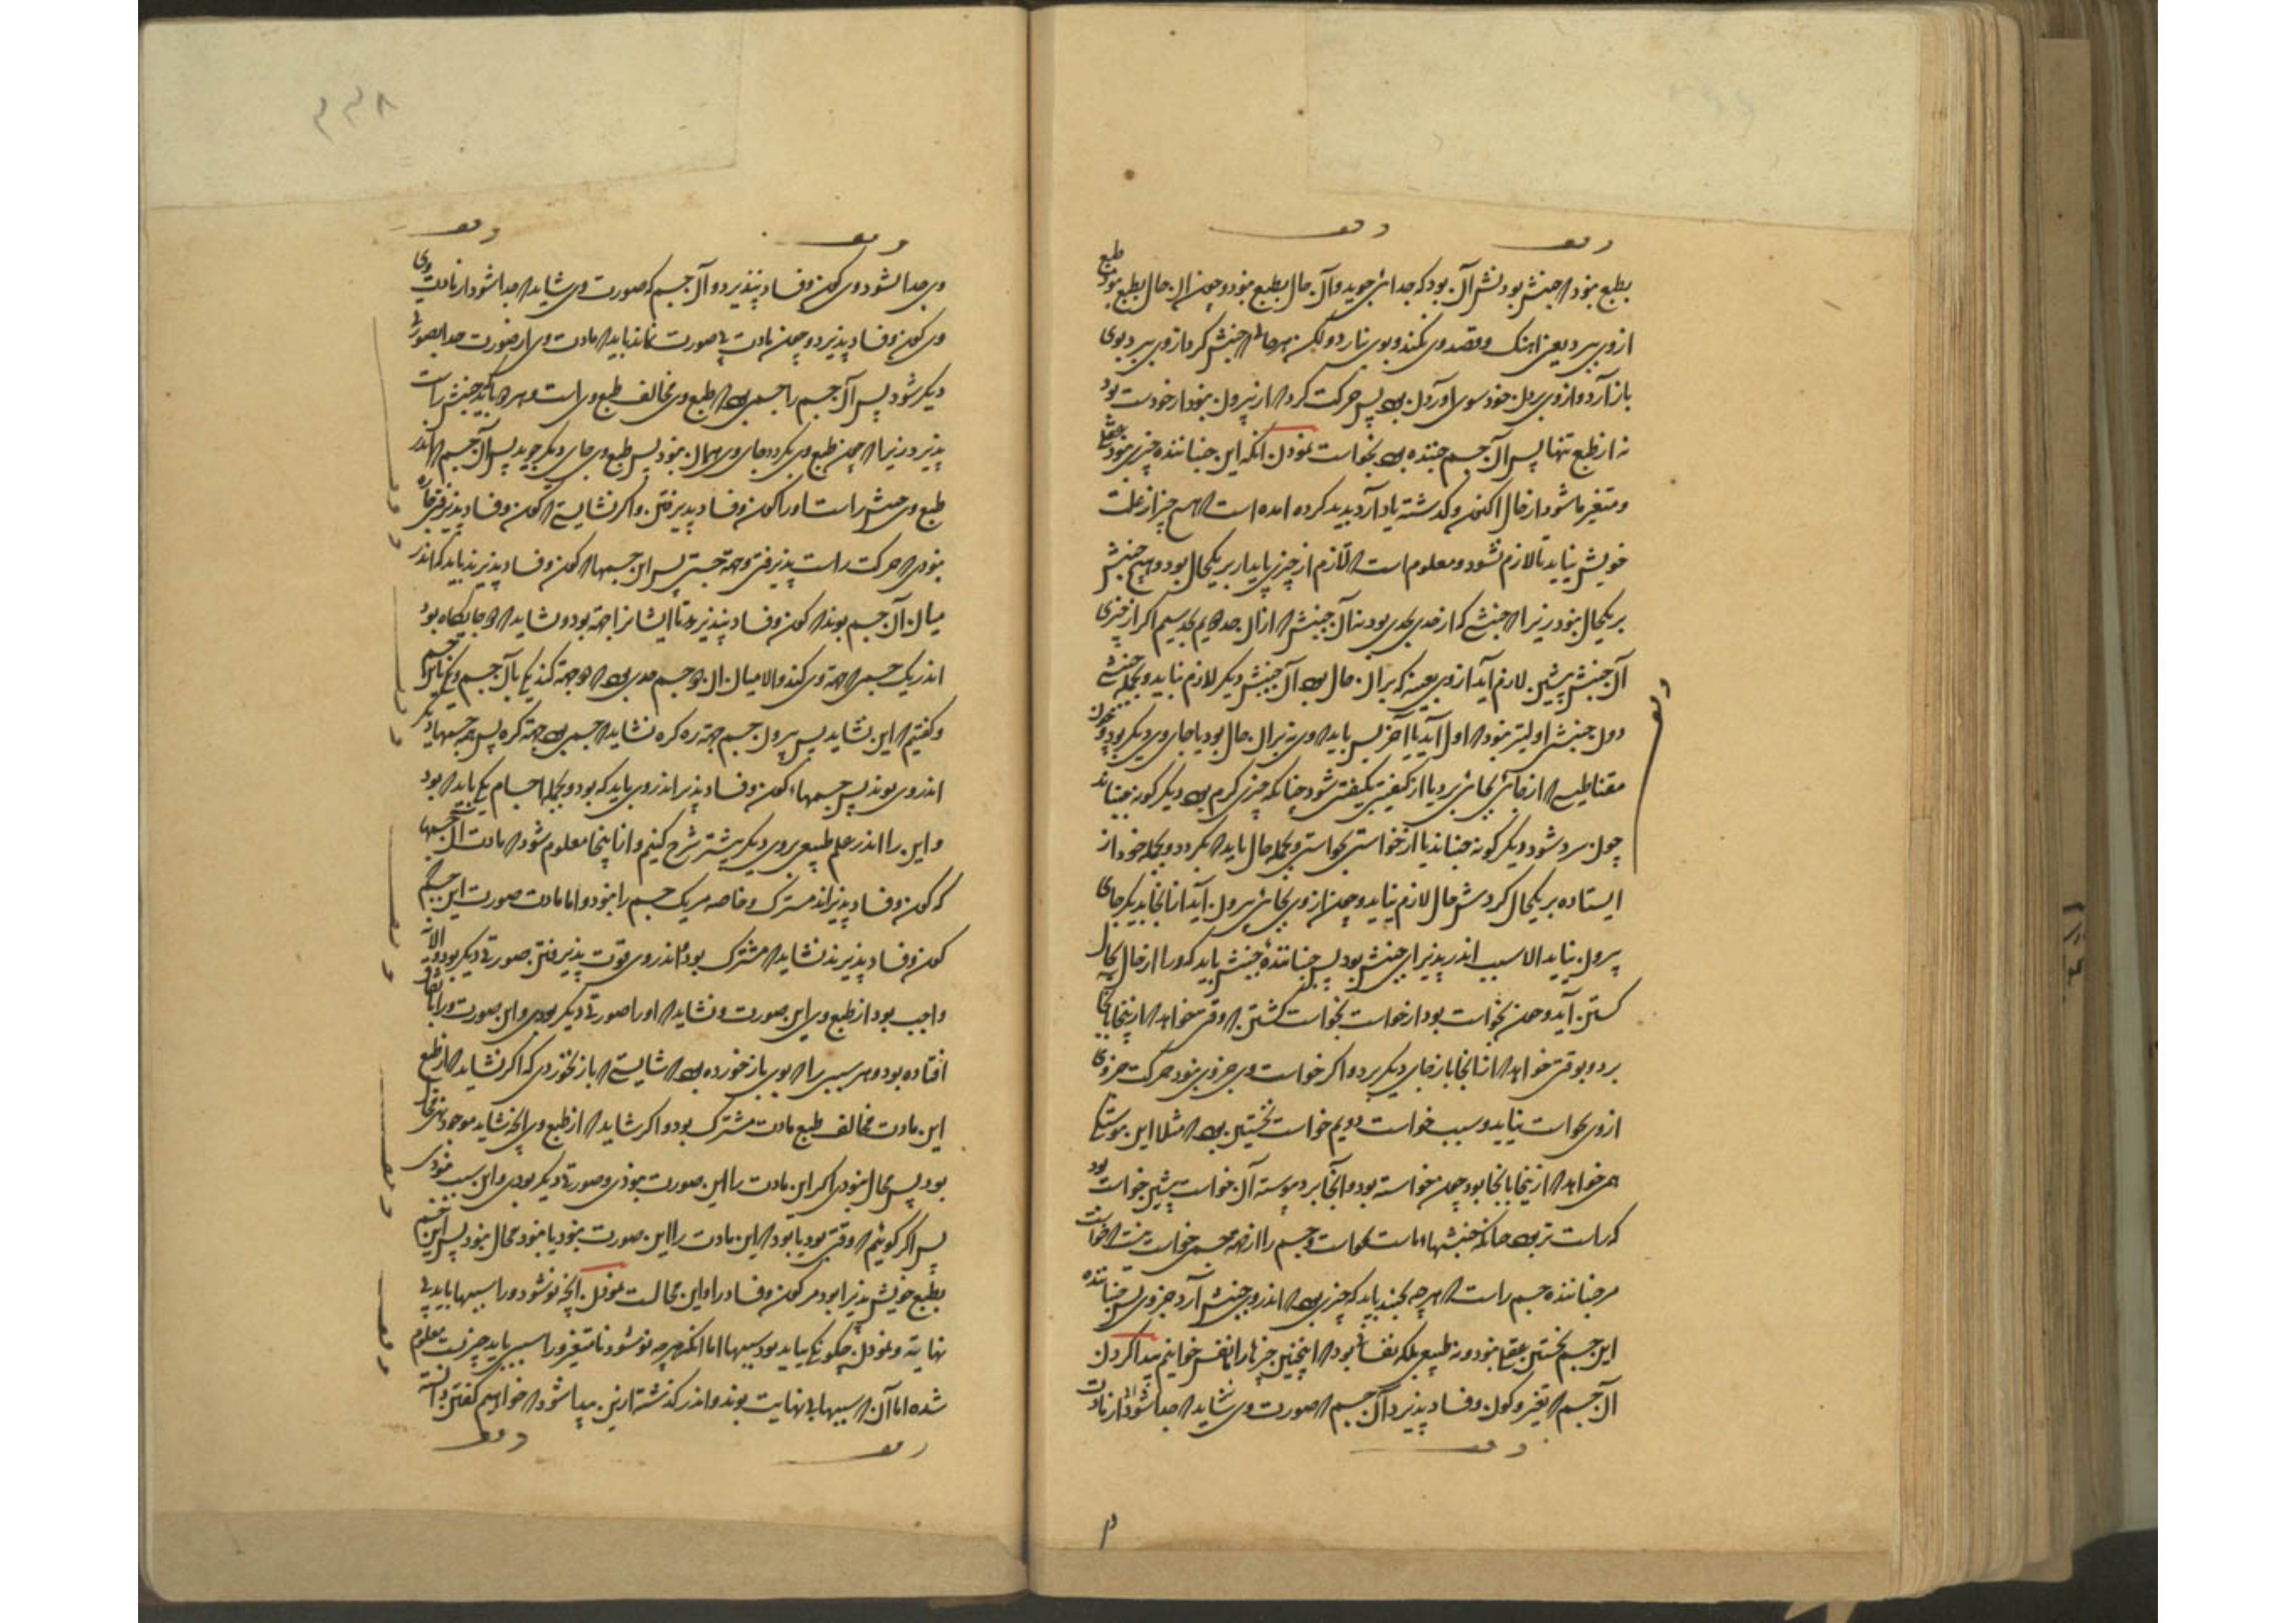 وقف
وقف
بطبع نبود که جنبش بود نش آن بود که جدائی جوید و آن حال بطبع نبود و چون آن حال بطبع بود طبع
از وی ببرد یعنی آهنگ و قصد وی نکند و بوی نیارد ولکن هرجا که جنبش کرد از وی ببرد بوی
باز آرد و از وی بردن خود سوی آوردن بود پس حرکت کرد که از بیرون بود از خودست بود
نه از طبع تنها پس آن جسم جنبنده بود بخواست نمودن آنکه این جنباننده چیزی نبود عقلی
و متغیر ناشود از حال اکنون و گذشته یاد آرد پدید کرده آمده است که هیچ چیز از علت
خویش نیاید تا لازم نشود و معلوم است که لازم از چیزی پایدار بر یکحال بود و هیچ جنبش
بر یکحال نبود زیرا که جنبشی که از حدی بحدی بود نه آن جنبش که از آن حد دویم بحد سیم اگر از چیزی
آن جنبش پیشین لازم آید از وی بعینه که بر آن حال بود آن جنبش دیگر لازم نیاید و بجمله جنبشی
دون جنبشی اولیتر نبود که اول آید یا آخر پس باید که وی نه بر آن حال بود یا جای وی دیگر بود و چون
مغناطیس که از جائی بجائی برد یا از کیفیتی بکیفیتی شود چنانکه چیزی گرم بود دیگر گونه جنباند
چون سرد شود دیگر گونه جنباند یا از خواستی بخواستی و بجمله حال باید که بگردد و بجمله خود از
ایستاده بر یکحال گردش حال لازم نیاید و چون از وی بجائی بیرون آید از آنجا بدیگر جای
بیرون نیاید الا سبب اندر پذیرای جنبش بود پس جنباننده جنبش باید که ورا از حال بحال
گشتن آید و چون بخواست بود از خواست بخواست گشتن که وقتی خواهد که از اینجا بآنجا
برد و بوقتی خواهد که از آنجا باز جای دیگر برد و اگر خواست وی جزوی نبود حرکت جزوی
از وی بخواست نیاید و سبب خواست دویم خواست نخستین بود که مثلا این
همی خواهد که از اینجا بآنجا بود چون خواسته بود و آنجا برد پیوسته آن خواست پیشین خواست بود
که راست تر بود چنانکه جنبشهاء ماست بخواست و جسم را از جهت جسمی خواست نیست که خواست
مر جنباننده جسم راست که هر چه بجنبد باید که چیزی بود که اندر وی جنبش آرد جزوی پس جنباننده
این جسم نخستین عقلی نبود و نه طبیعی بلکه نفسانی بود که اینچنین چیزها را نفس خوانیم پیدا کردن
آن جسم که تغیر و کون و فساد پذیرد آن جسم که صورت وی شاید که جدا شود از مادت
وقف
وقف
وقف
وقف
وی جدا نشود وی کون و فساد نپذیرد و آن جسم که صورت وی شاید که جدا شود از مادت وی
وی کون و فساد پذیرد و چون مادت بی صورت نماند باید که مادت وی از صورت جدا بصورتی
دیگر شود پس آن جسم را جسمی بود که طبع وی مخالف طبع وی است و هر دو باید جنبش راست
پذیرد زیرا که چون طبع وی بگردد جای وی همان نبود پس طبع وی جای دیگر جوید پس آن جسم که اندر
طبع وی جنبش راست او را کون و فساد پذیرفتن و اگر نشایستی که کون و فساد پذیرفتن چاره
نبودی که حرکت راست پذیرفتی و جهت جستی پس این جسمها که کون و فساد پذیرند باید که اندر
میان آن جسم بوند که کون و فساد نپذیرد تا ایشانرا جهت بود و نشاید که دو جایگاه بود
اندر یک جسمی جهت وی کند و الا میان آن دو جسم حدی بود که دو جهت کند یکی بآن جسم و یکی باین جسم دیگر
و گفتیم که این نشاید پس بیرون جسم جهت ده کره نشاید که جسمی بود جهت کره پس همه جسمهاء دیگر
اندر وی بوند پس جسمهاء کون و فساد پذیر اندر وی باید که بود و بجمله اجسام یکی باید که بود
و این را اندر علم طبیعی بروی دیگر بیشتر شرح کنیم و از اینجا معلوم شود که مادت آن جسمها
که کون و فساد پذیراند مشترک و خاصه مر یک جسم را نبود و اما مادت صورت این جسم که
کون و فساد پذیرند نشاید که مشترک بود که اندر وی قوت پذیرفتن صورتی دیگر بود و الا نه
واجب بود از طبع وی این صورت و نشاید که او را صورتی دیگر بودی و این صورت ورا باتفاق
افتاده بود و هر سببی را که بوی باز خورده بود که شایستی که باز نخوردی که اگر نشاید که از طبع
این مادت مخالف طبع مادت مشترک بود و اگر شاید که از طبع وی آنچه شاید موجود نهی محال
بود پس محال نبودی اگر این مادت را این صورت نبودی و صورتی دیگر بودی و این سبب نبودی
پس اگر گوئیم که وقتی بود یا بود که این مادت را این صورت نبود یا نبود محال نبود پس این جسم
بطبع خویش پذیرا بود مر کون و فساد را و این محالست نمودن آنچه نو شود ورا سببها باید بی
نهایة و نمودن چگونگی باید بود سببها اما آنکه هر چه نو شود نا متغیر ورا سببی باید چیزیست معلوم
شده اما آن که سببها بی نهایت بوند و اندر گذشته ازین پیدا شود که خواهیم گفتن و دانسته
وقف
وقف